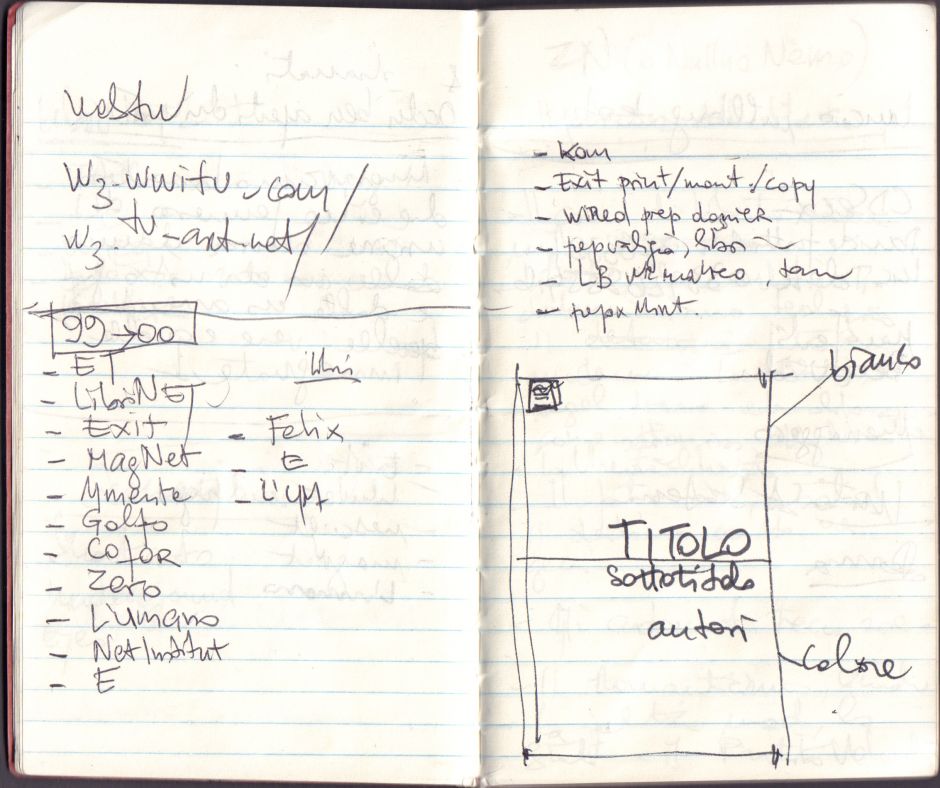 W3.wwitv.com
W3 tv-art.net
99→00
- ET
- LibriNET
- Exit
- MagNet
- Mmente
- Golfo
- Color
- Zero
- L'umano
- Net Institut
- E
libri
- Felix
- E
- L'UM
- Kom
- Exit print/mont./copy
- wired prep dossier
- libri
- LB
- Mint.
bianco
TITOLO
Sottotitolo
autori
Colore